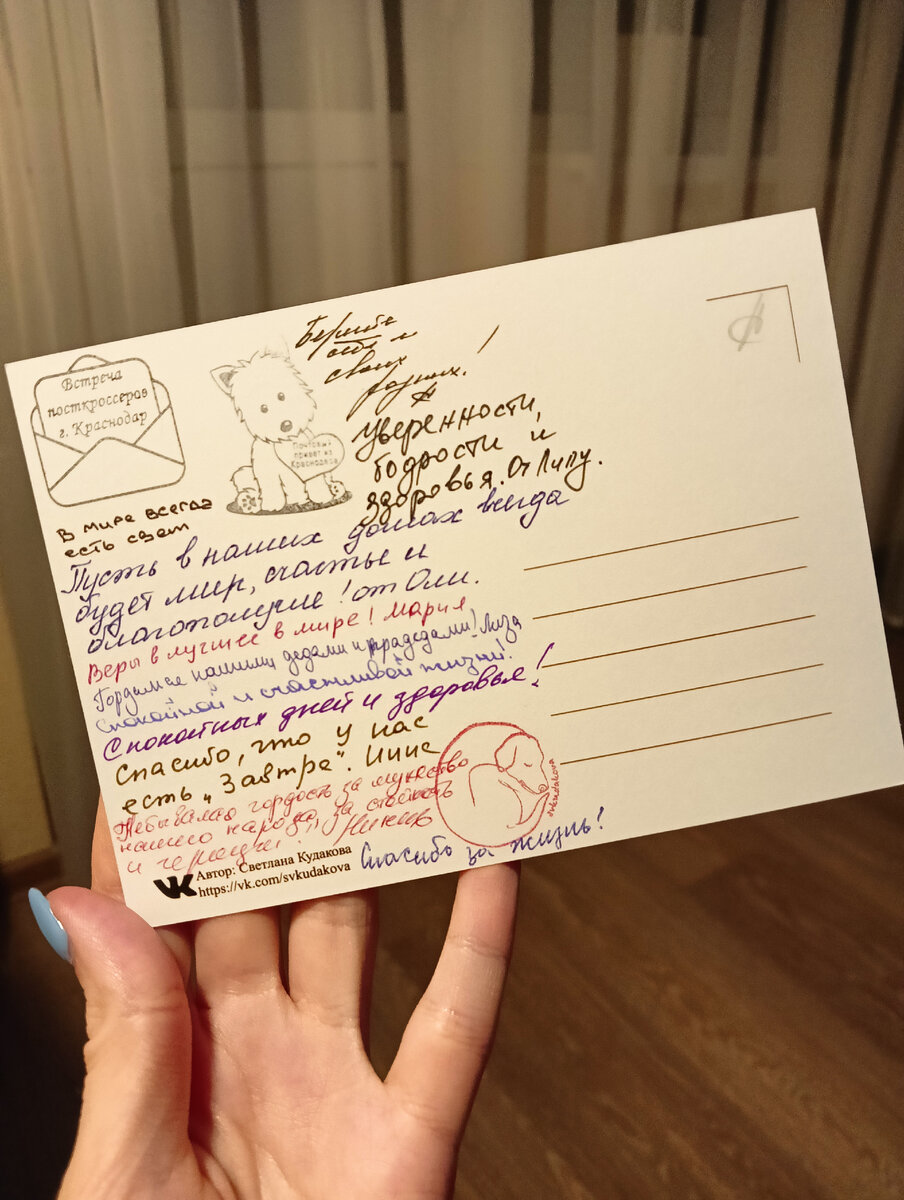 Встреча
посткроссеров
г. Краснодар
Почтовый
привет из
Краснодара
Берегите
себя и
своих
родных!
уверенности,
бодрости и
здоровья. От
В мире всегда
есть свет
Пусть в наших домах всегда
будет мир, счастье и
благополучие! от Оли.
Веры в лучшее в мире! Мария
Гордимся нашими дедами и прадедами! Лиза
Спокойной и счастливой жизни!
Спокойных дней и здоровья!
Спасибо, что у нас
есть „Завтра“.
гордость за мужество
нашего народа, за стойкость
и
svkudakova
Спасибо за жизнь!
Автор: Светлана Кудакова
https://vk.com/svkudakova